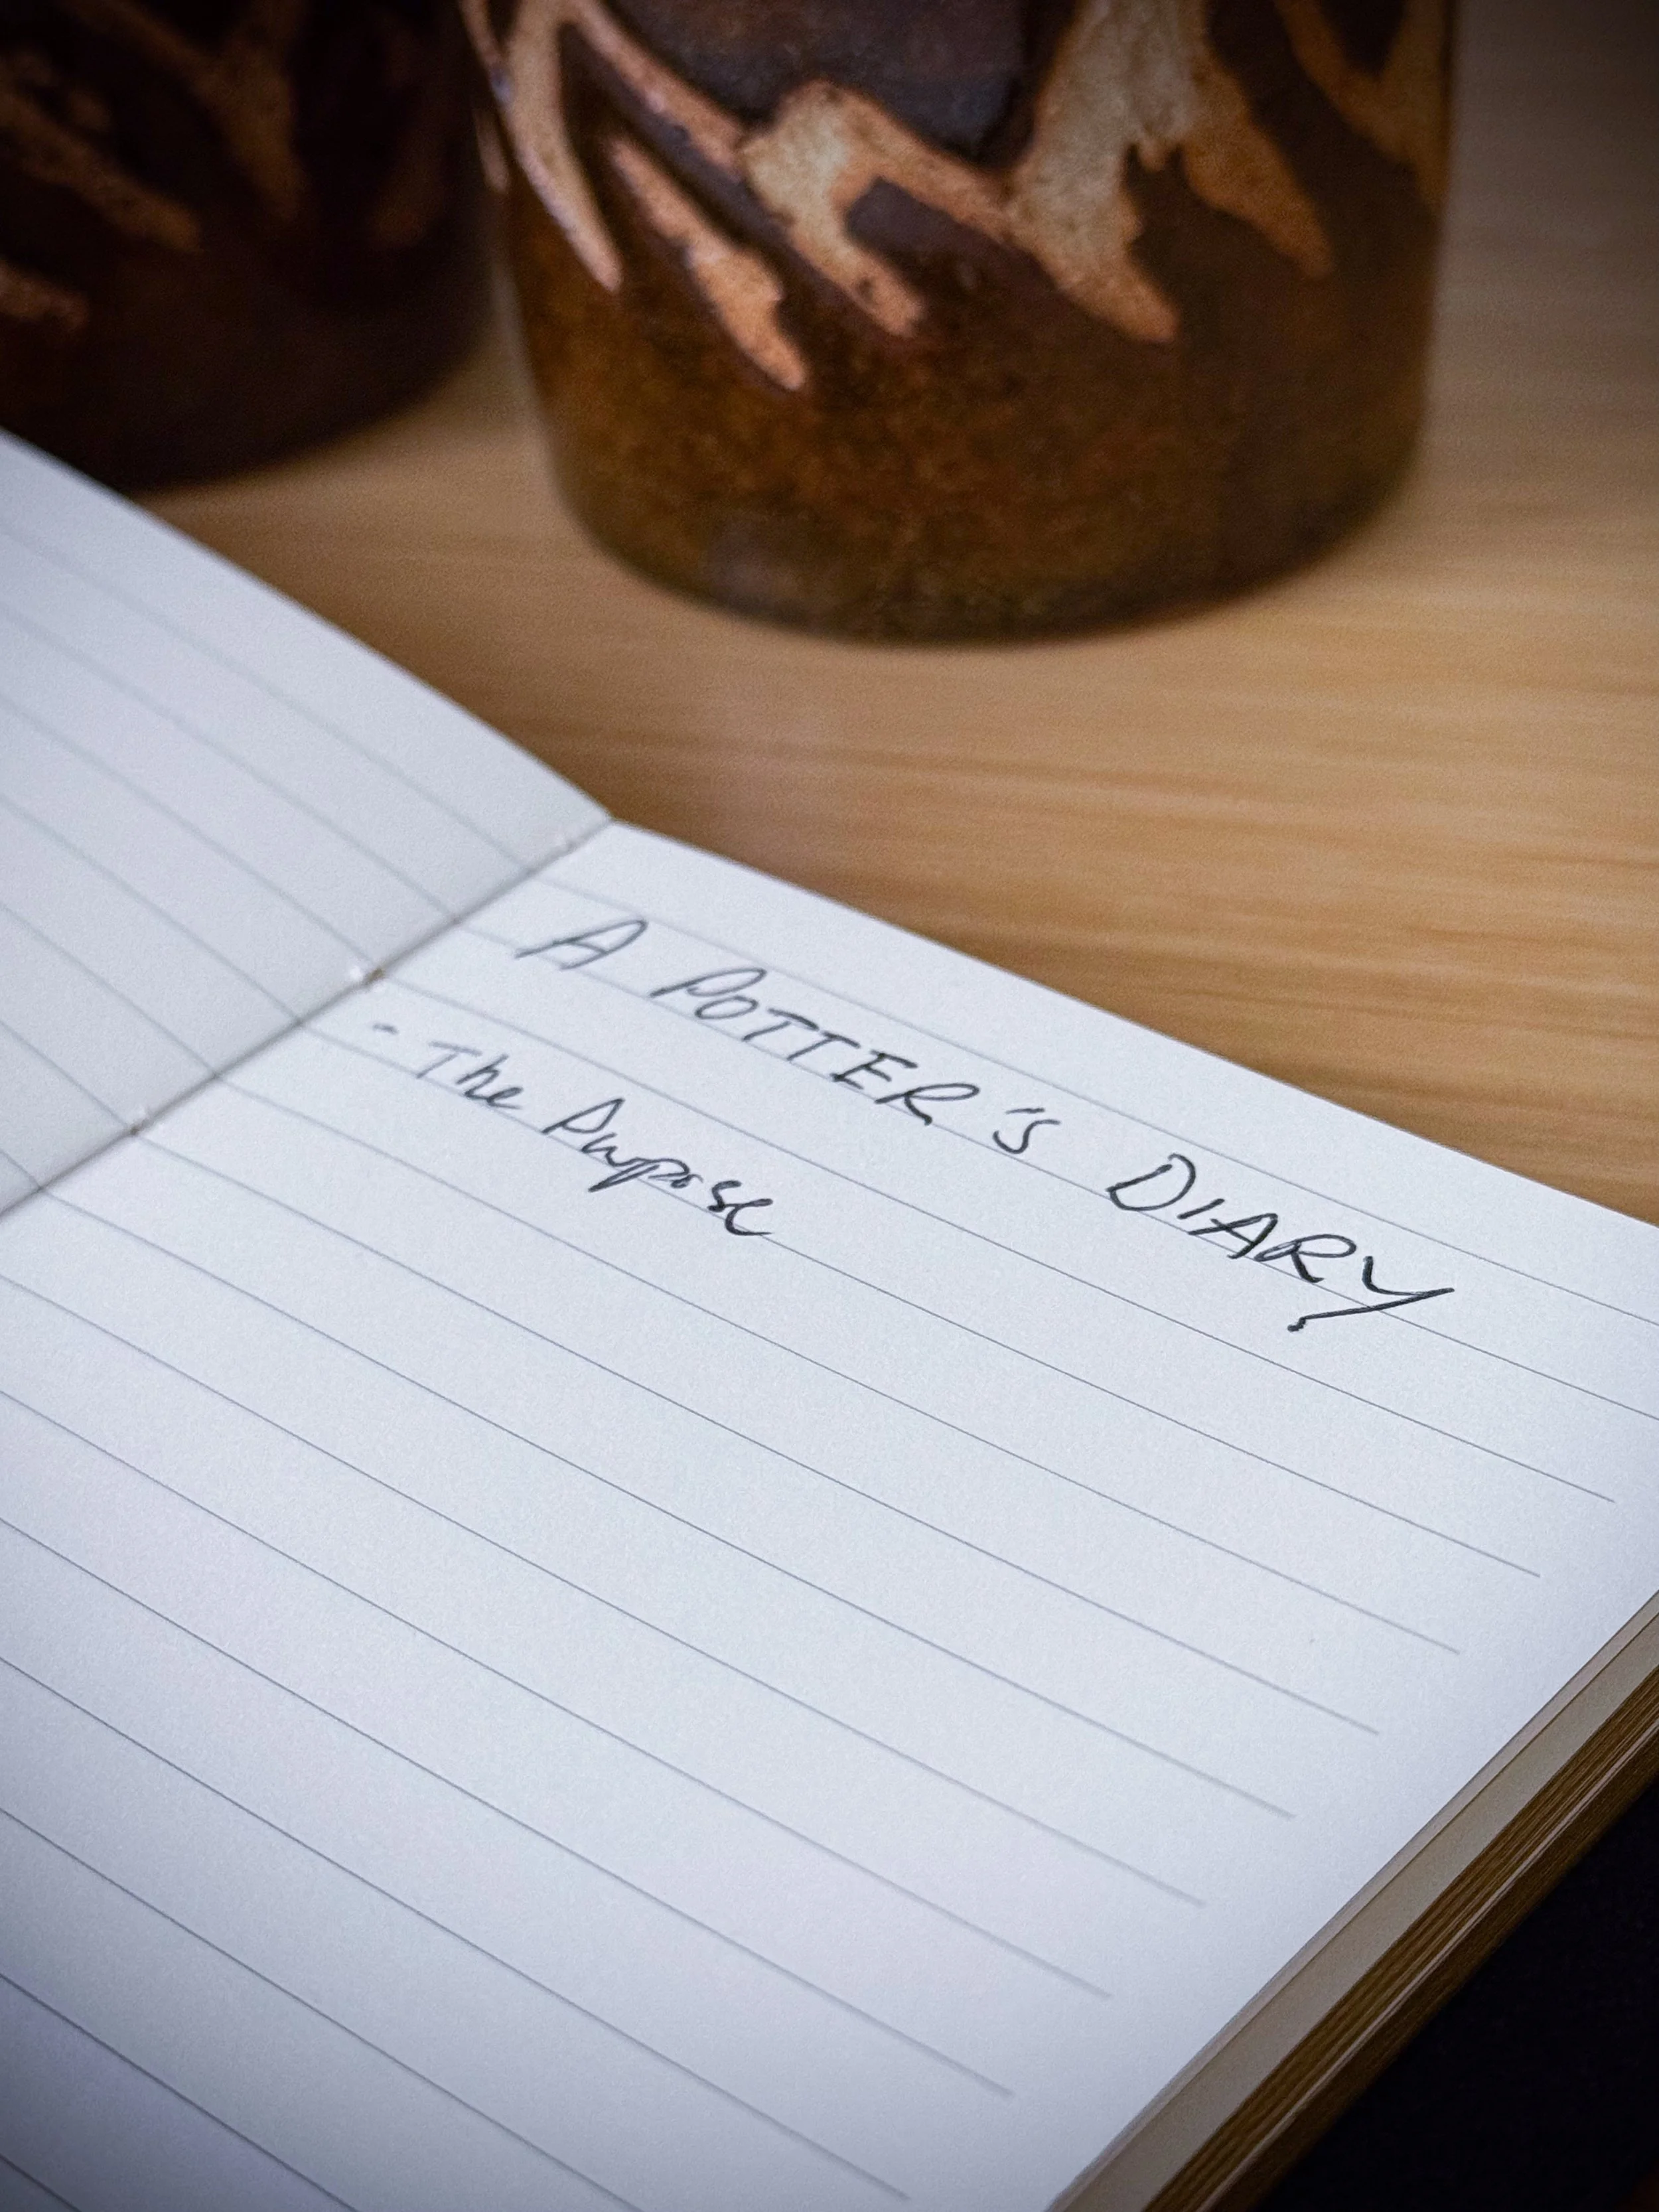 A POTTER'S DIARY
- The Purpose